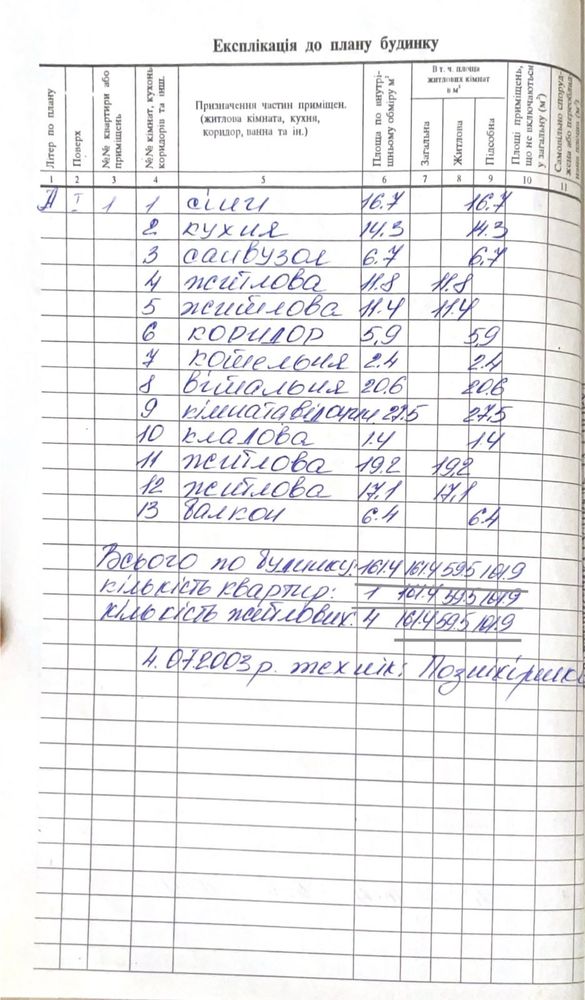 Експлікація до плану будинку
Літер по плану
Поверх
№№ квартири або приміщень
№№ кімнат, кухонь, коридорів та інш.
Призначення частин приміщен.
(житлова кімната, кухня,
коридор, ванна та ін.)
Площа по внутрішньому обміру м²
В т. ч. площа
житлових кімнат
в м²
Загальна
Житлова
Підсобна
Площі приміщень, що не включаються у загальну (м²)
1 2 3 4 5 6 7 8 9 10 11
А I 1 1 сіни 16.7 16.7
2 кухня 14.3 14.3
3 санвузол 6.7 6.7
4 житлова 11.8 11.8
5 житлова 11.4 11.4
6 коридор 5,9 5,9
7 котельня 2.4 2.4
8 вітальня 20.6 20.6
9 кімната 27.5 27.5
10 кладова 1.4 1.4
11 житлова 19.2 19,2
12 житлова 17.1 17,1
13 балкон 6.4 6.4
Всього по будинку: 161.4 161.4 59.5 101.9
кількість квартир: 1 161.4 59.5 101.9
кількість житлових: 4 161.4 59.5 101.9
4.07.2003 р. технік: